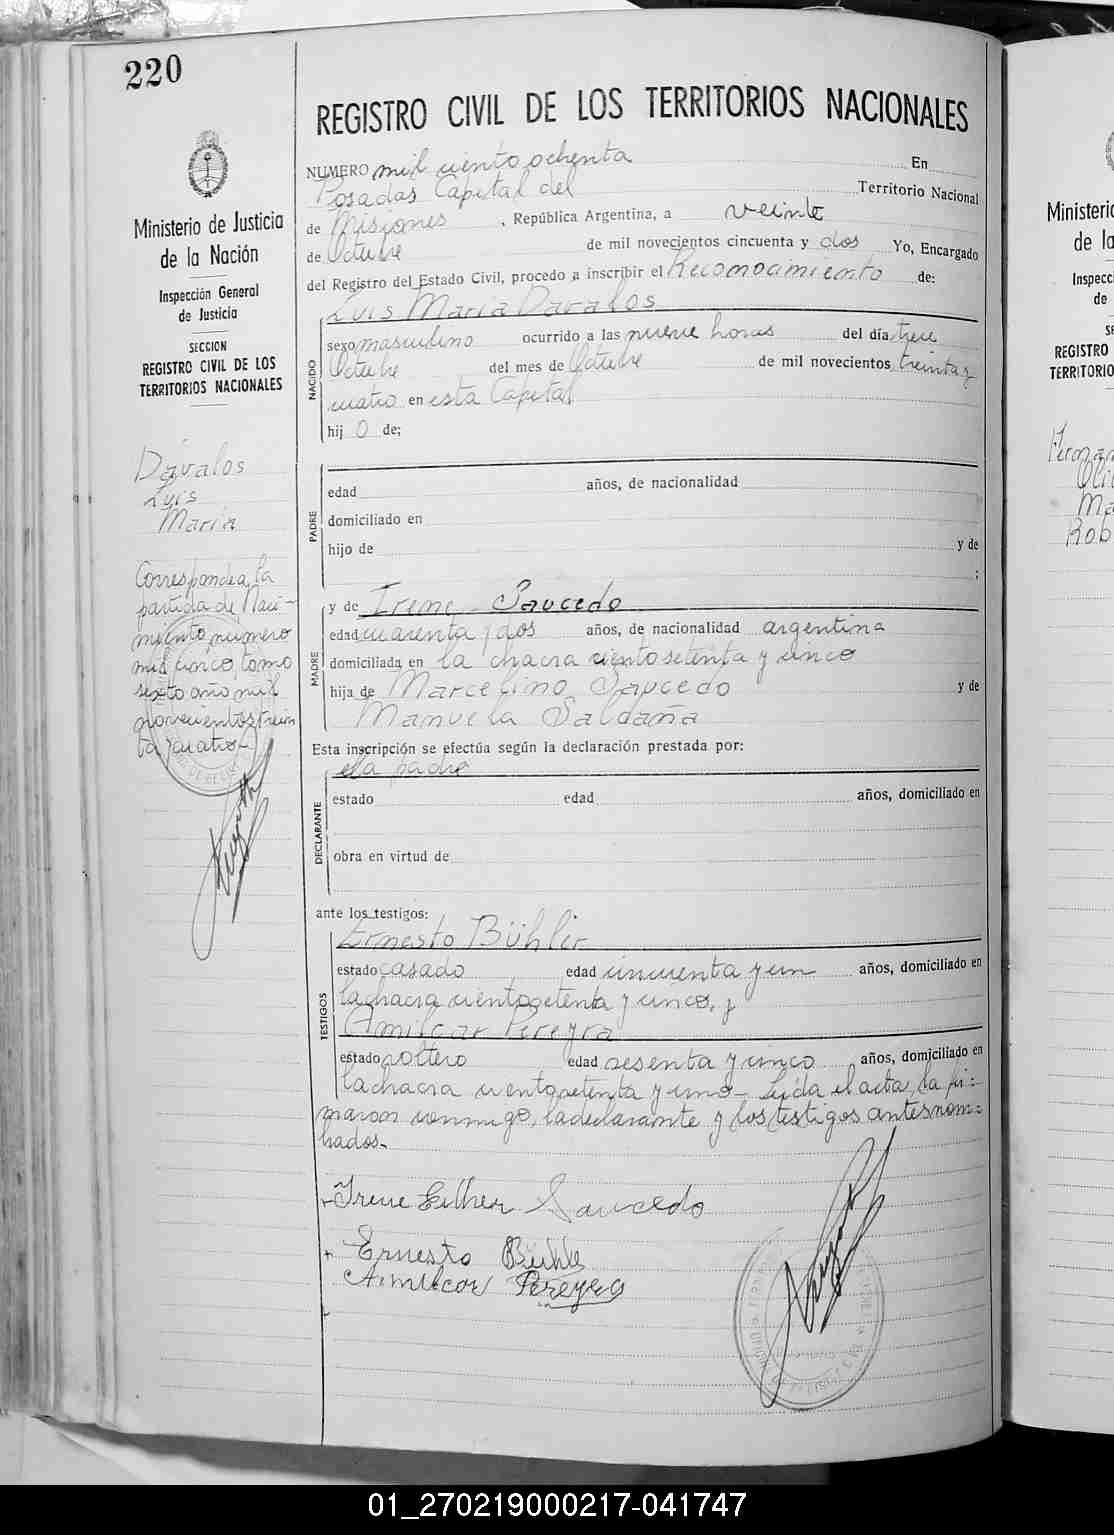 220
REGISTRO CIVIL DE LOS TERRITORIOS NACIONALES
NUMERO mil ciento ochenta En
Posadas Capital del Territorio Nacional
de Misiones , República Argentina, a veinte
de Octubre de mil novecientos cincuenta y dos Yo, Encargado
del Registro del Estado Civil, procedo a inscribir el Reconocimiento de:
Luis Maria Davalos
NACIDO
sexo masculino ocurrido a las nueve horas del día trece
Octubre del mes de Octubre de mil novecientos treinta y
cuatro en esta Capital
hij o de;
PADRE
edad años, de nacionalidad
domiciliado en
hijo de y de
;
MADRE
y de Irene Saucedo
edad cuarenta y dos años, de nacionalidad argentina
domiciliada en la chacra ciento setenta y cinco
hija de Marcelino Saucedo y de
Manuela Saldaña
Esta inscripción se efectúa según la declaración prestada por:
la padre
DECLARANTE
estado edad años, domiciliado en
obra en virtud de
ante los testigos:
TESTIGOS
Ernesto Bühler
estado casado edad cincuenta y un años, domiciliado en
la chacra ciento setenta y cinco, y
Amilcar Pereyra
estado soltero edad sesenta y cinco años, domiciliado en
la chacra ciento setenta y uno- Leida el acta, la fir=
maron conmigo, la declarante y los testigos antes nom=
brados.
Irene Esther Saucedo
Ernesto Bühler
Amilcar Pereyra
Ministerio de Justicia
de la Nación
Inspección General
de Justicia
SECCION
REGISTRO CIVIL DE LOS
TERRITORIOS NACIONALES
Dávalos
Luis
Maria
Corresponde a la
partida de Naci-
miento número
mil cinco, tomo
sexto año mil
novecientos trein
ta y cuatro-
Ministerio
de la
Inspecc
de
SE
REGISTRO
TERRITORIO
Ma
Rob
01_270219000217-041747